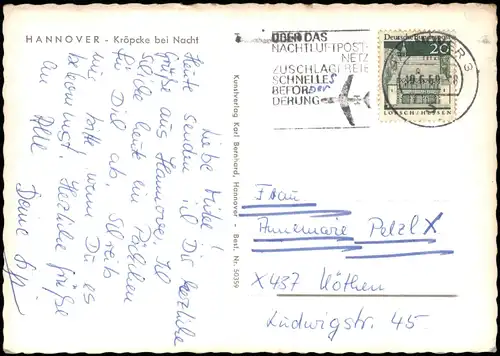 HANNOVER - Kröpcke bei Nacht
Liebe Mutti!
Heute senden ich Dir herzliche
Grüße aus Hannover. Ich
schicke heute ein Päckchen
für Dich ab. Schreib
mir bitte wenn Du es
bekommst. Herzliche Grüße
an Alle
Deine
Kunstverlag Karl Bernhard, Hannover - Best. Nr. 50359
ÜBER DAS
NACHTLUFTPOST-
NETZ
ZUSCHLAGFREIE
SCHNELLE
BEFÖR
DERUNG
3
Deutsche Bundespost
20
LORSCH/HESSEN
Frau
Annemarie Pelzl
X437 Köthen
Ludwigstr. 45